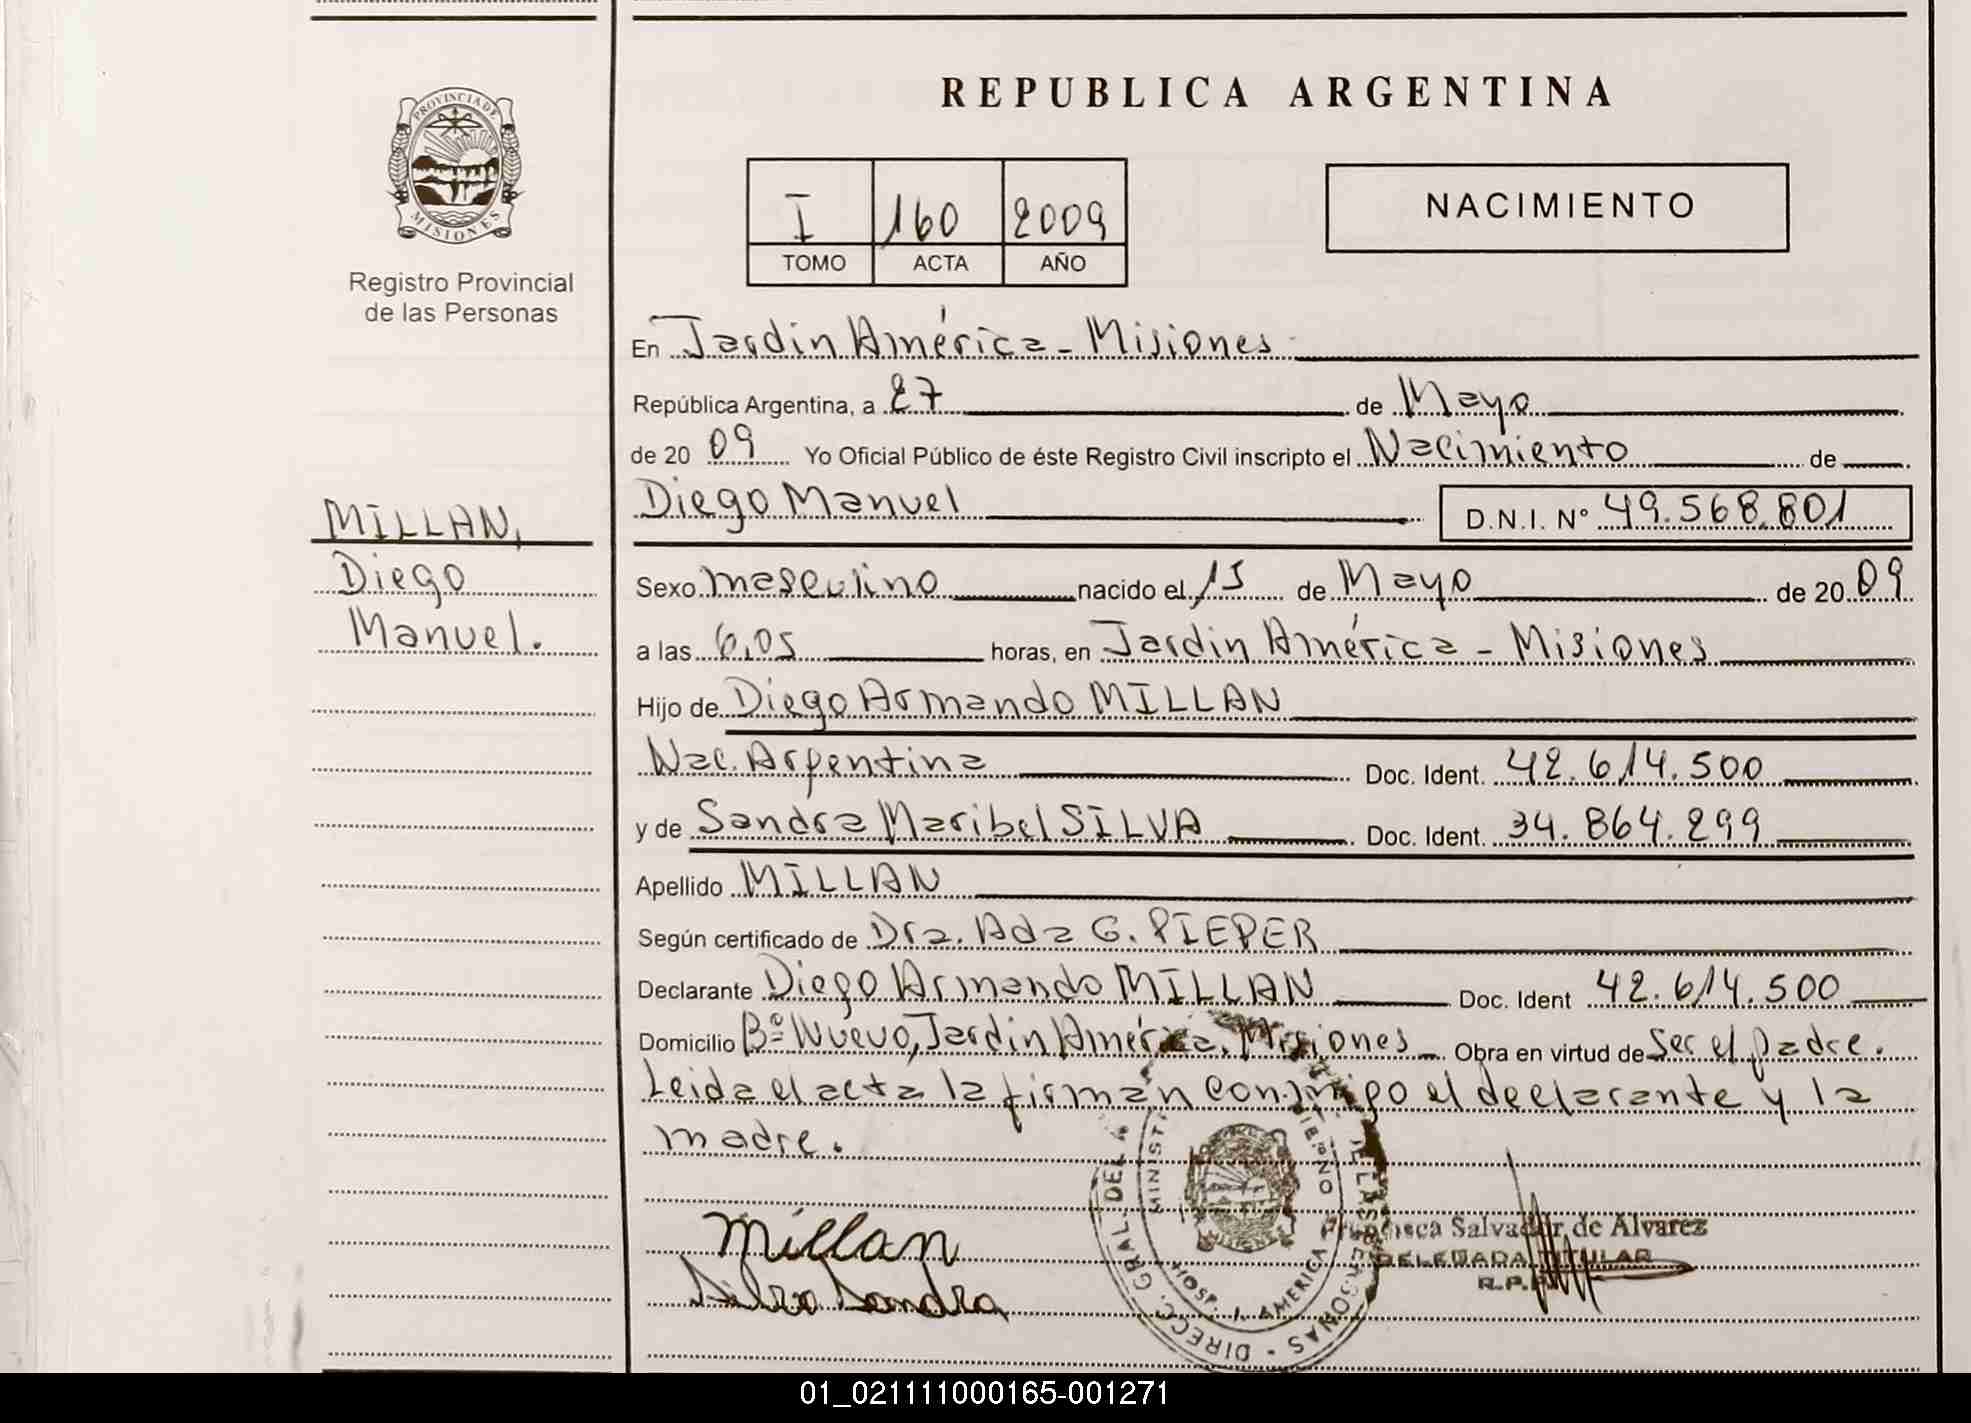 REPUBLICA ARGENTINA
PROVINCIA DE
MISIONES
Registro Provincial
de las Personas
I 160 2009
TOMO ACTA AÑO
NACIMIENTO
En Jardin América - Misiones
República Argentina, a 27 de Mayo
de 20 09 Yo Oficial Público de éste Registro Civil inscripto el Nacimiento de
MILLAN,
Diego
Manuel.
Diego Manuel D.N.I. Nº 49.568.801
Sexo masculino nacido el 15 de Mayo de 20 09
a las 6,05 horas, en Jardin América - Misiones
Hijo de Diego Armando MILLAN
Nac. Argentina Doc. Ident. 42.614.500
y de Sandra Maribel SILVA Doc. Ident. 34.864.299
Apellido MILLAN
Según certificado de Dra. Ada G. PIEPER
Declarante Diego Armando MILLAN Doc. Ident 42.614.500
Domicilio Bº Nuevo, Jardin América, Misiones Obra en virtud de Ser el padre.
Leida el acta la firman conmigo el declarante y la
madre.
Millan
Silva Sandra
DIRECC. GRAL. DEL
DE LAS PERSONAS
HOSP. J. AMERICA
Francisca Salvador de Alvarez
DELEGADA TITULAR
01_021111000165-001271